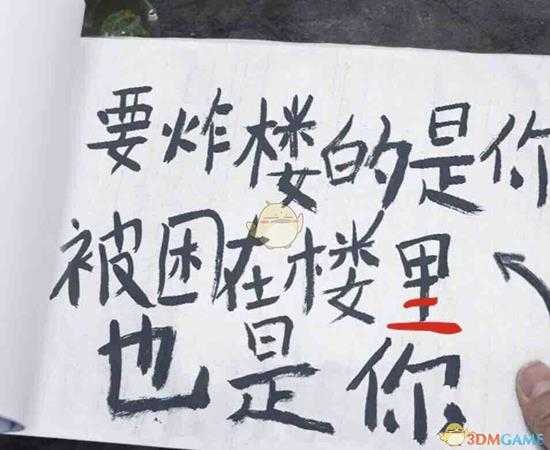 要炸楼的是你
被困在楼里
也是你
3DMGAME